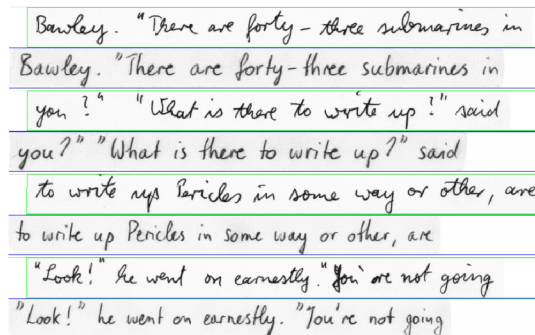 Bawley. "There are forty - three submarines in
Bawley. "There are forty-three submarines in
you?" "What is there to write up?" said
you?" "What is there to write up?" said
to write up Pericles in some way or other, are
to write up Pericles in some way or other, are
"Look!" he went on earnestly. "You're not going
"Look!" he went on earnestly. "You're not going